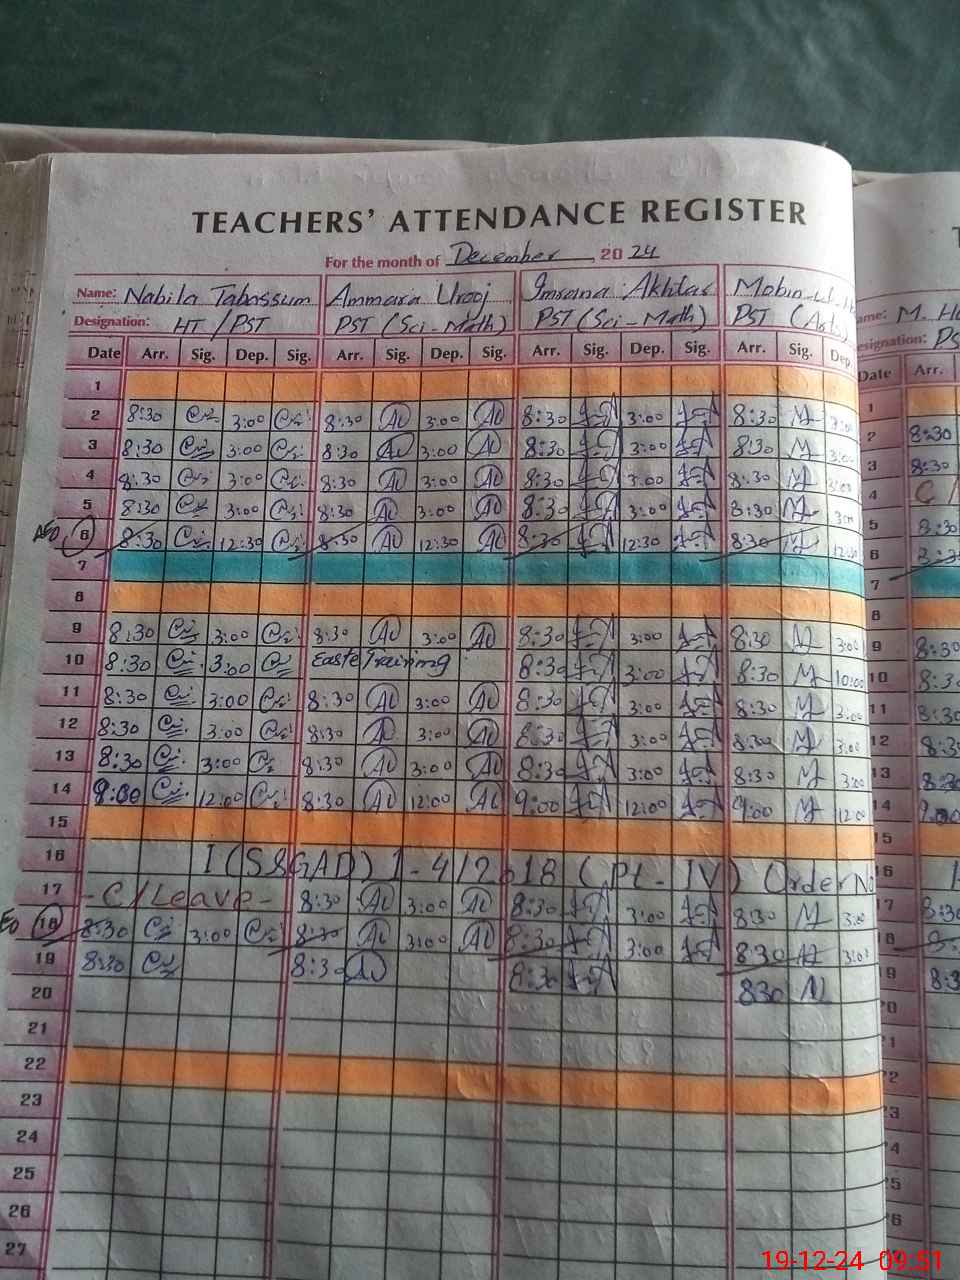 TEACHERS' ATTENDANCE REGISTER
For the month of December 2024
Name: Nabila Tabassum Ammara Urooj Imrana Akhtar Mobin-ul-
Designation: HT / PST PST (Sci-Math) PST (Sci-Math) PST (Arts)
Date Arr. Sig. Dep. Sig. Arr. Sig. Dep. Sig. Arr. Sig. Dep. Sig. Arr. Sig. Dep.
1
2 8:30 3:00 8:30 AU 3:00 AU 8:30 3:00 8:30 M 3:00
3 8:30 3:00 8:30 AU 3:00 AU 8:30 3:00 8:30 M 3:00
4 8:30 3:00 8:30 AU 3:00 AU 8:30 3:00 8:30 M 3:00
5 8:30 3:00 8:30 AU 3:00 AU 8:30 3:00 8:30 M 3:00
AEO 6 8:30 12:30 8:30 AU 12:30 AU 8:30 12:30 8:30 M 12:30
7
8
9 8:30 3:00 8:30 AU 3:00 AU 8:30 3:00 8:30 M 3:00
10 8:30 3:00 Training 8:30 3:00 8:30 M 10:00
11 8:30 3:00 8:30 AU 3:00 AU 8:30 3:00 8:30 M 3:00
12 8:30 3:00 8:30 AU 3:00 AU 8:30 3:00 8:30 M 3:00
13 8:30 3:00 8:30 AU 3:00 AU 8:30 3:00 8:30 M 3:00
14 9:00 12:00 8:30 AU 12:00 AU 9:00 12:00 9:00 M 12:00
15
16 I(S&GAD) 1-4/2018 (Pt-IV) Order No
17 - C/Leave - 8:30 AU 3:00 AU 8:30 3:00 830 M 3:00
18 8:30 3:00 8:30 AU 3:00 AU 8:30 3:00 830 M 3:00
19 8:30 8:30 AU 8:30 830 M
20
21
22
23
24
25
26
27
M.
Date Arr.
1
2 8:30
3 8:30
4
5 8:30
6
7
8
9 8:30
10 8:30
11 8:30
12 8:30
13 8:30
14 9:00
15
16
17 8:30
18
19 8:3
19-12-24 09:51